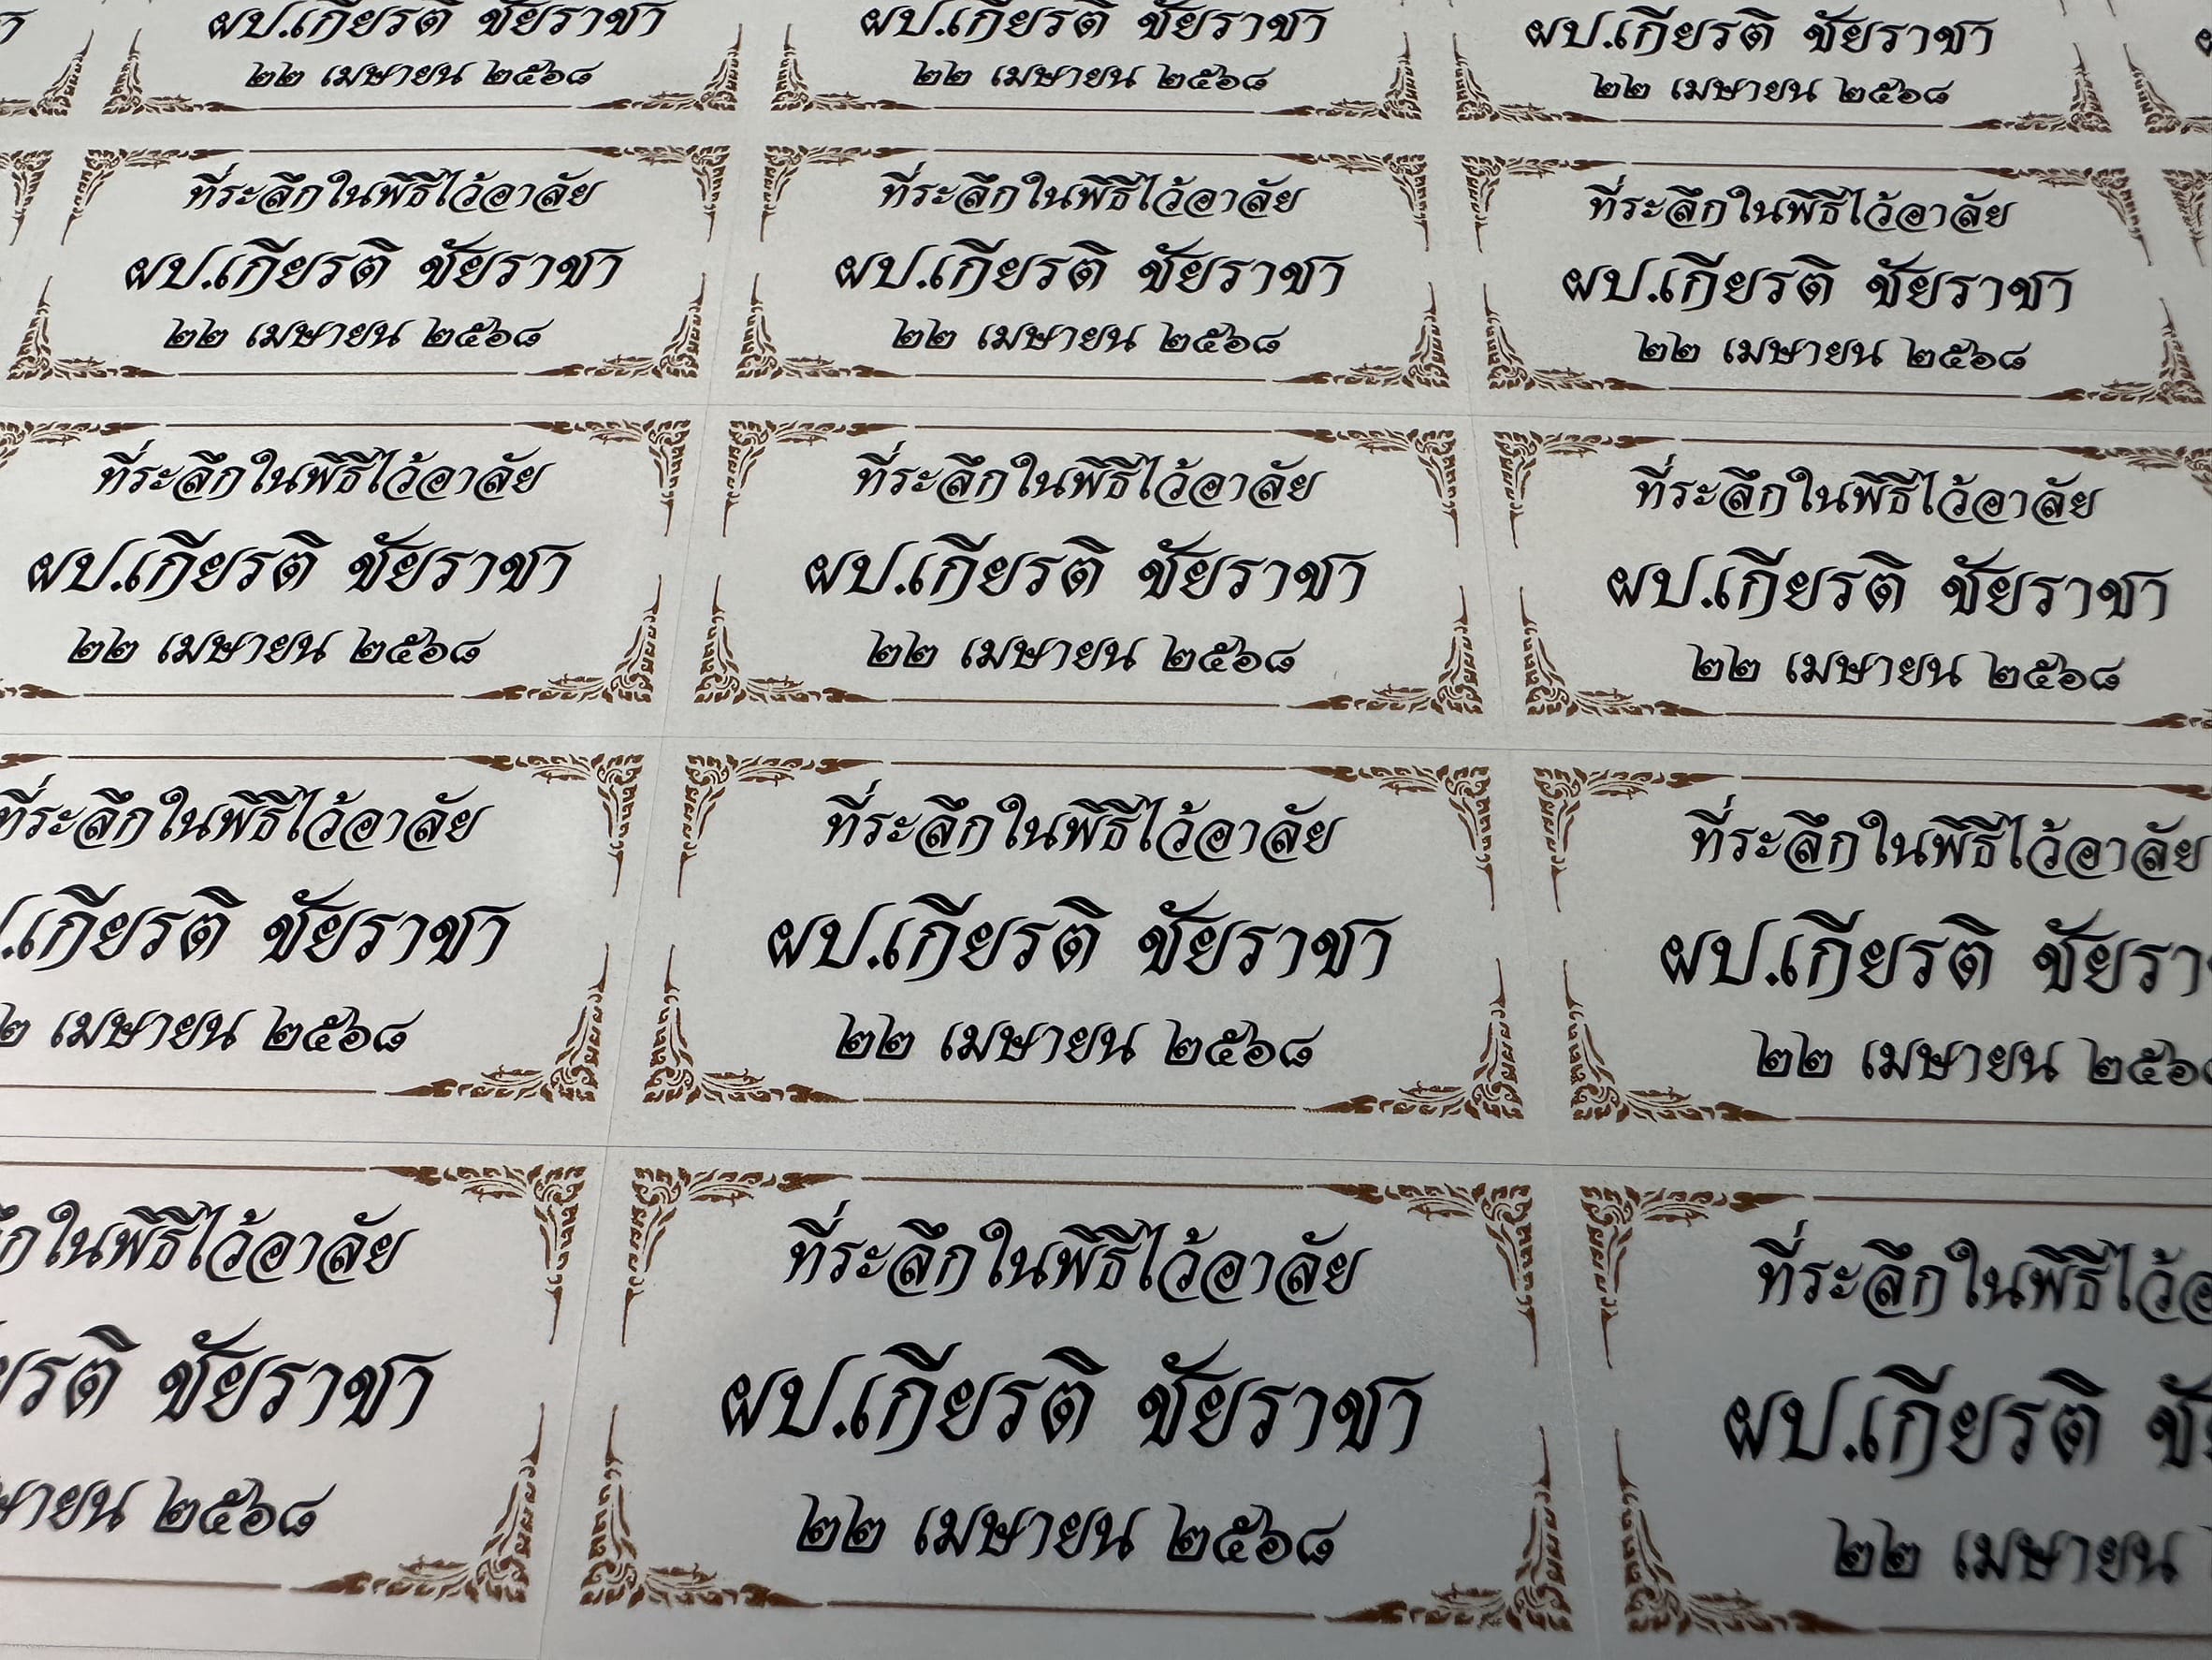 ผป.เกียรติ ชัยราชา
๒๒ เมษายน ๒๕๖๘
ผป.เกียรติ ชัยราชา
๒๒ เมษายน ๒๕๖๘
ผป.เกียรติ ชัยราชา
๒๒ เมษายน ๒๕๖๘
ที่ระลึกในพิธีไว้อาลัย
ผป.เกียรติ ชัยราชา
๒๒ เมษายน ๒๕๖๘
ที่ระลึกในพิธีไว้อาลัย
ผป.เกียรติ ชัยราชา
๒๒ เมษายน ๒๕๖๘
ที่ระลึกในพิธีไว้อาลัย
ผป.เกียรติ ชัยราชา
๒๒ เมษายน ๒๕๖๘
ที่ระลึกในพิธีไว้อาลัย
ผป.เกียรติ ชัยราชา
๒๒ เมษายน ๒๕๖๘
ที่ระลึกในพิธีไว้อาลัย
ผป.เกียรติ ชัยราชา
๒๒ เมษายน ๒๕๖๘
ที่ระลึกในพิธีไว้อาลัย
ผป.เกียรติ ชัยราชา
๒๒ เมษายน ๒๕๖๘
ที่ระลึกในพิธีไว้อาลัย
.เกียรติ ชัยราชา
๒ เมษายน ๒๕๖๘
ที่ระลึกในพิธีไว้อาลัย
ผป.เกียรติ ชัยราชา
๒๒ เมษายน ๒๕๖๘
ที่ระลึกในพิธีไว้อาลัย
ผป.เกียรติ ชัยรา
๒๒ เมษายน ๒๕๖
ึกในพิธีไว้อาลัย
ยรติ ชัยราชา
ษายน ๒๕๖๘
ที่ระลึกในพิธีไว้อาลัย
ผป.เกียรติ ชัยราชา
๒๒ เมษายน ๒๕๖๘
ที่ระลึกในพิธีไว้อ
ผป.เกียรติ ชั
๒๒ เมษายน